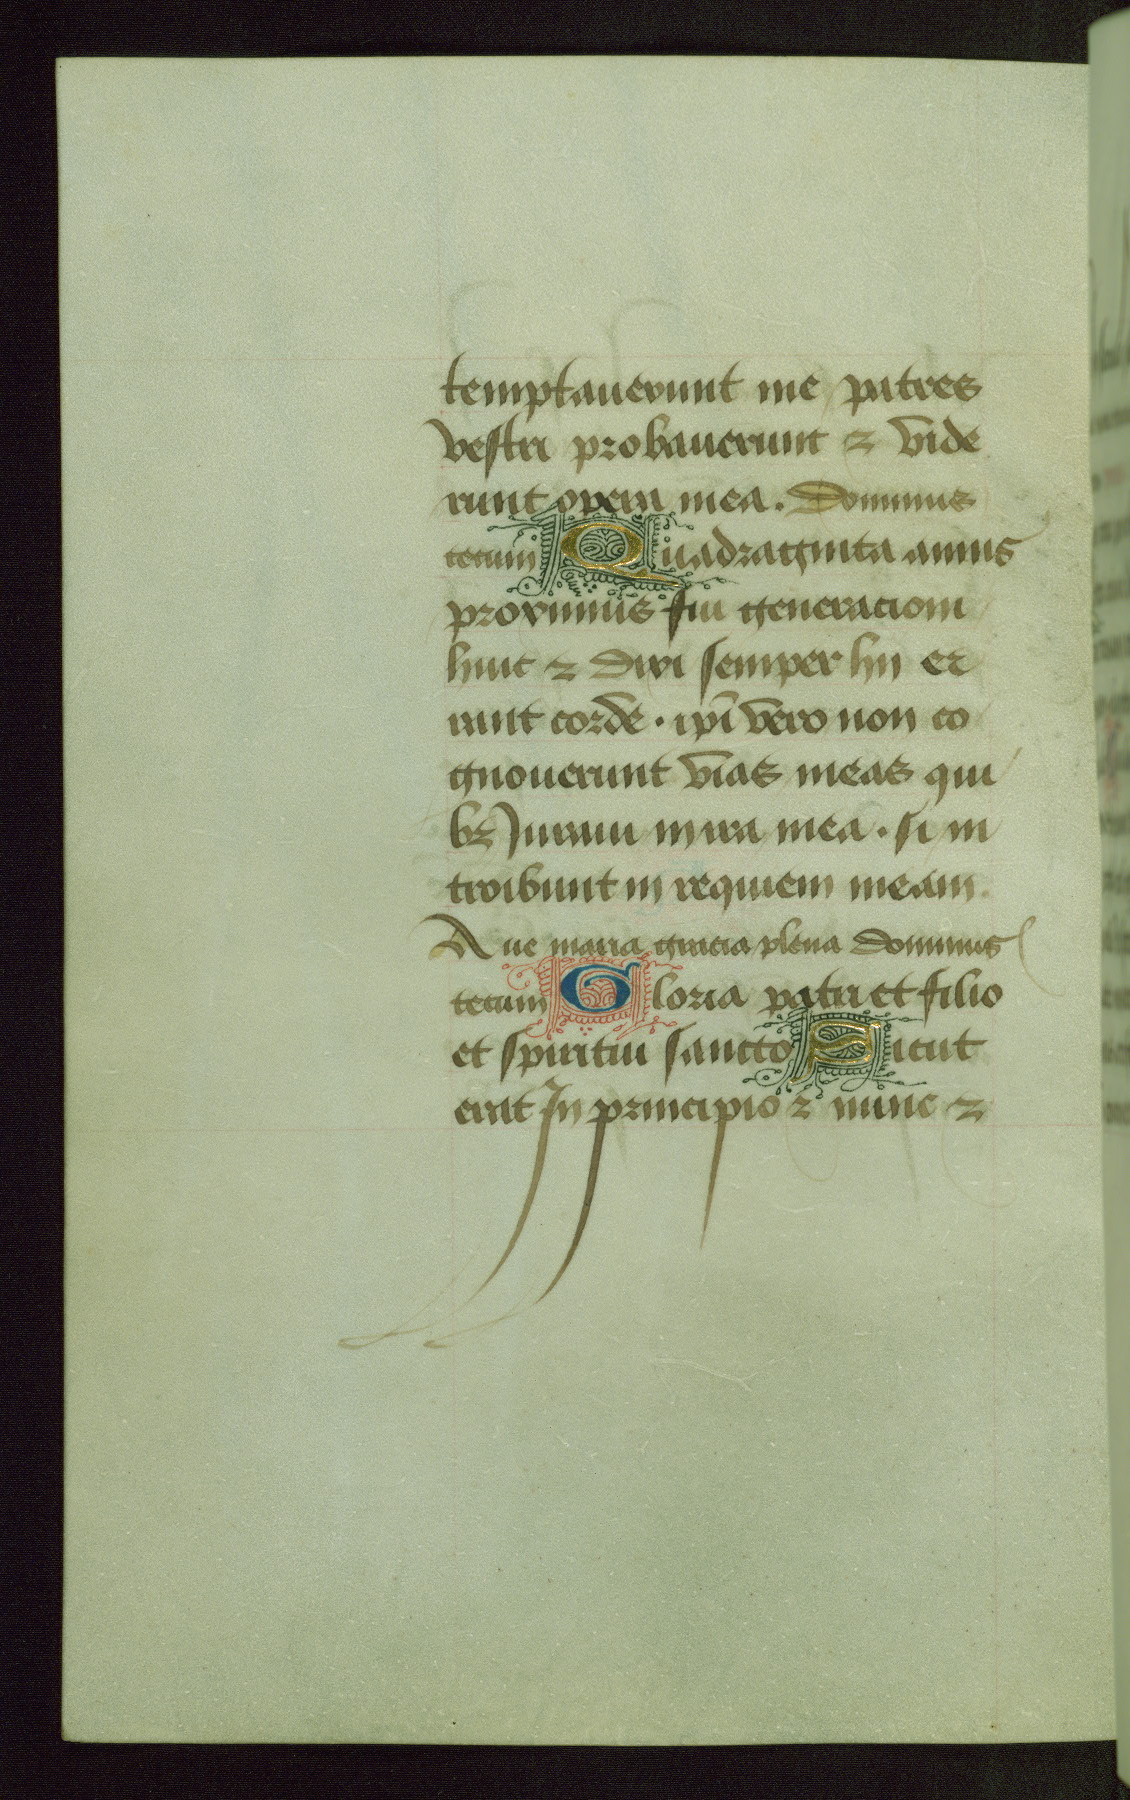 temptauerunt me patres
vestri probauerunt ⁊ vide
runt opera mea. Dominus
tecum Quadraginta annis
proximus fui generacioni
huic ⁊ dixi semper hii er
rant corde · ip̄i vero non co
gnouerunt vias meas qui
bz Juraui in ira mea · si in
troibunt in requiem meam
Aue maria gracia plena Dominus
tecum Gloria patri et filio
et spiritui sancto Sicut
erat In principio ⁊ nunc ⁊